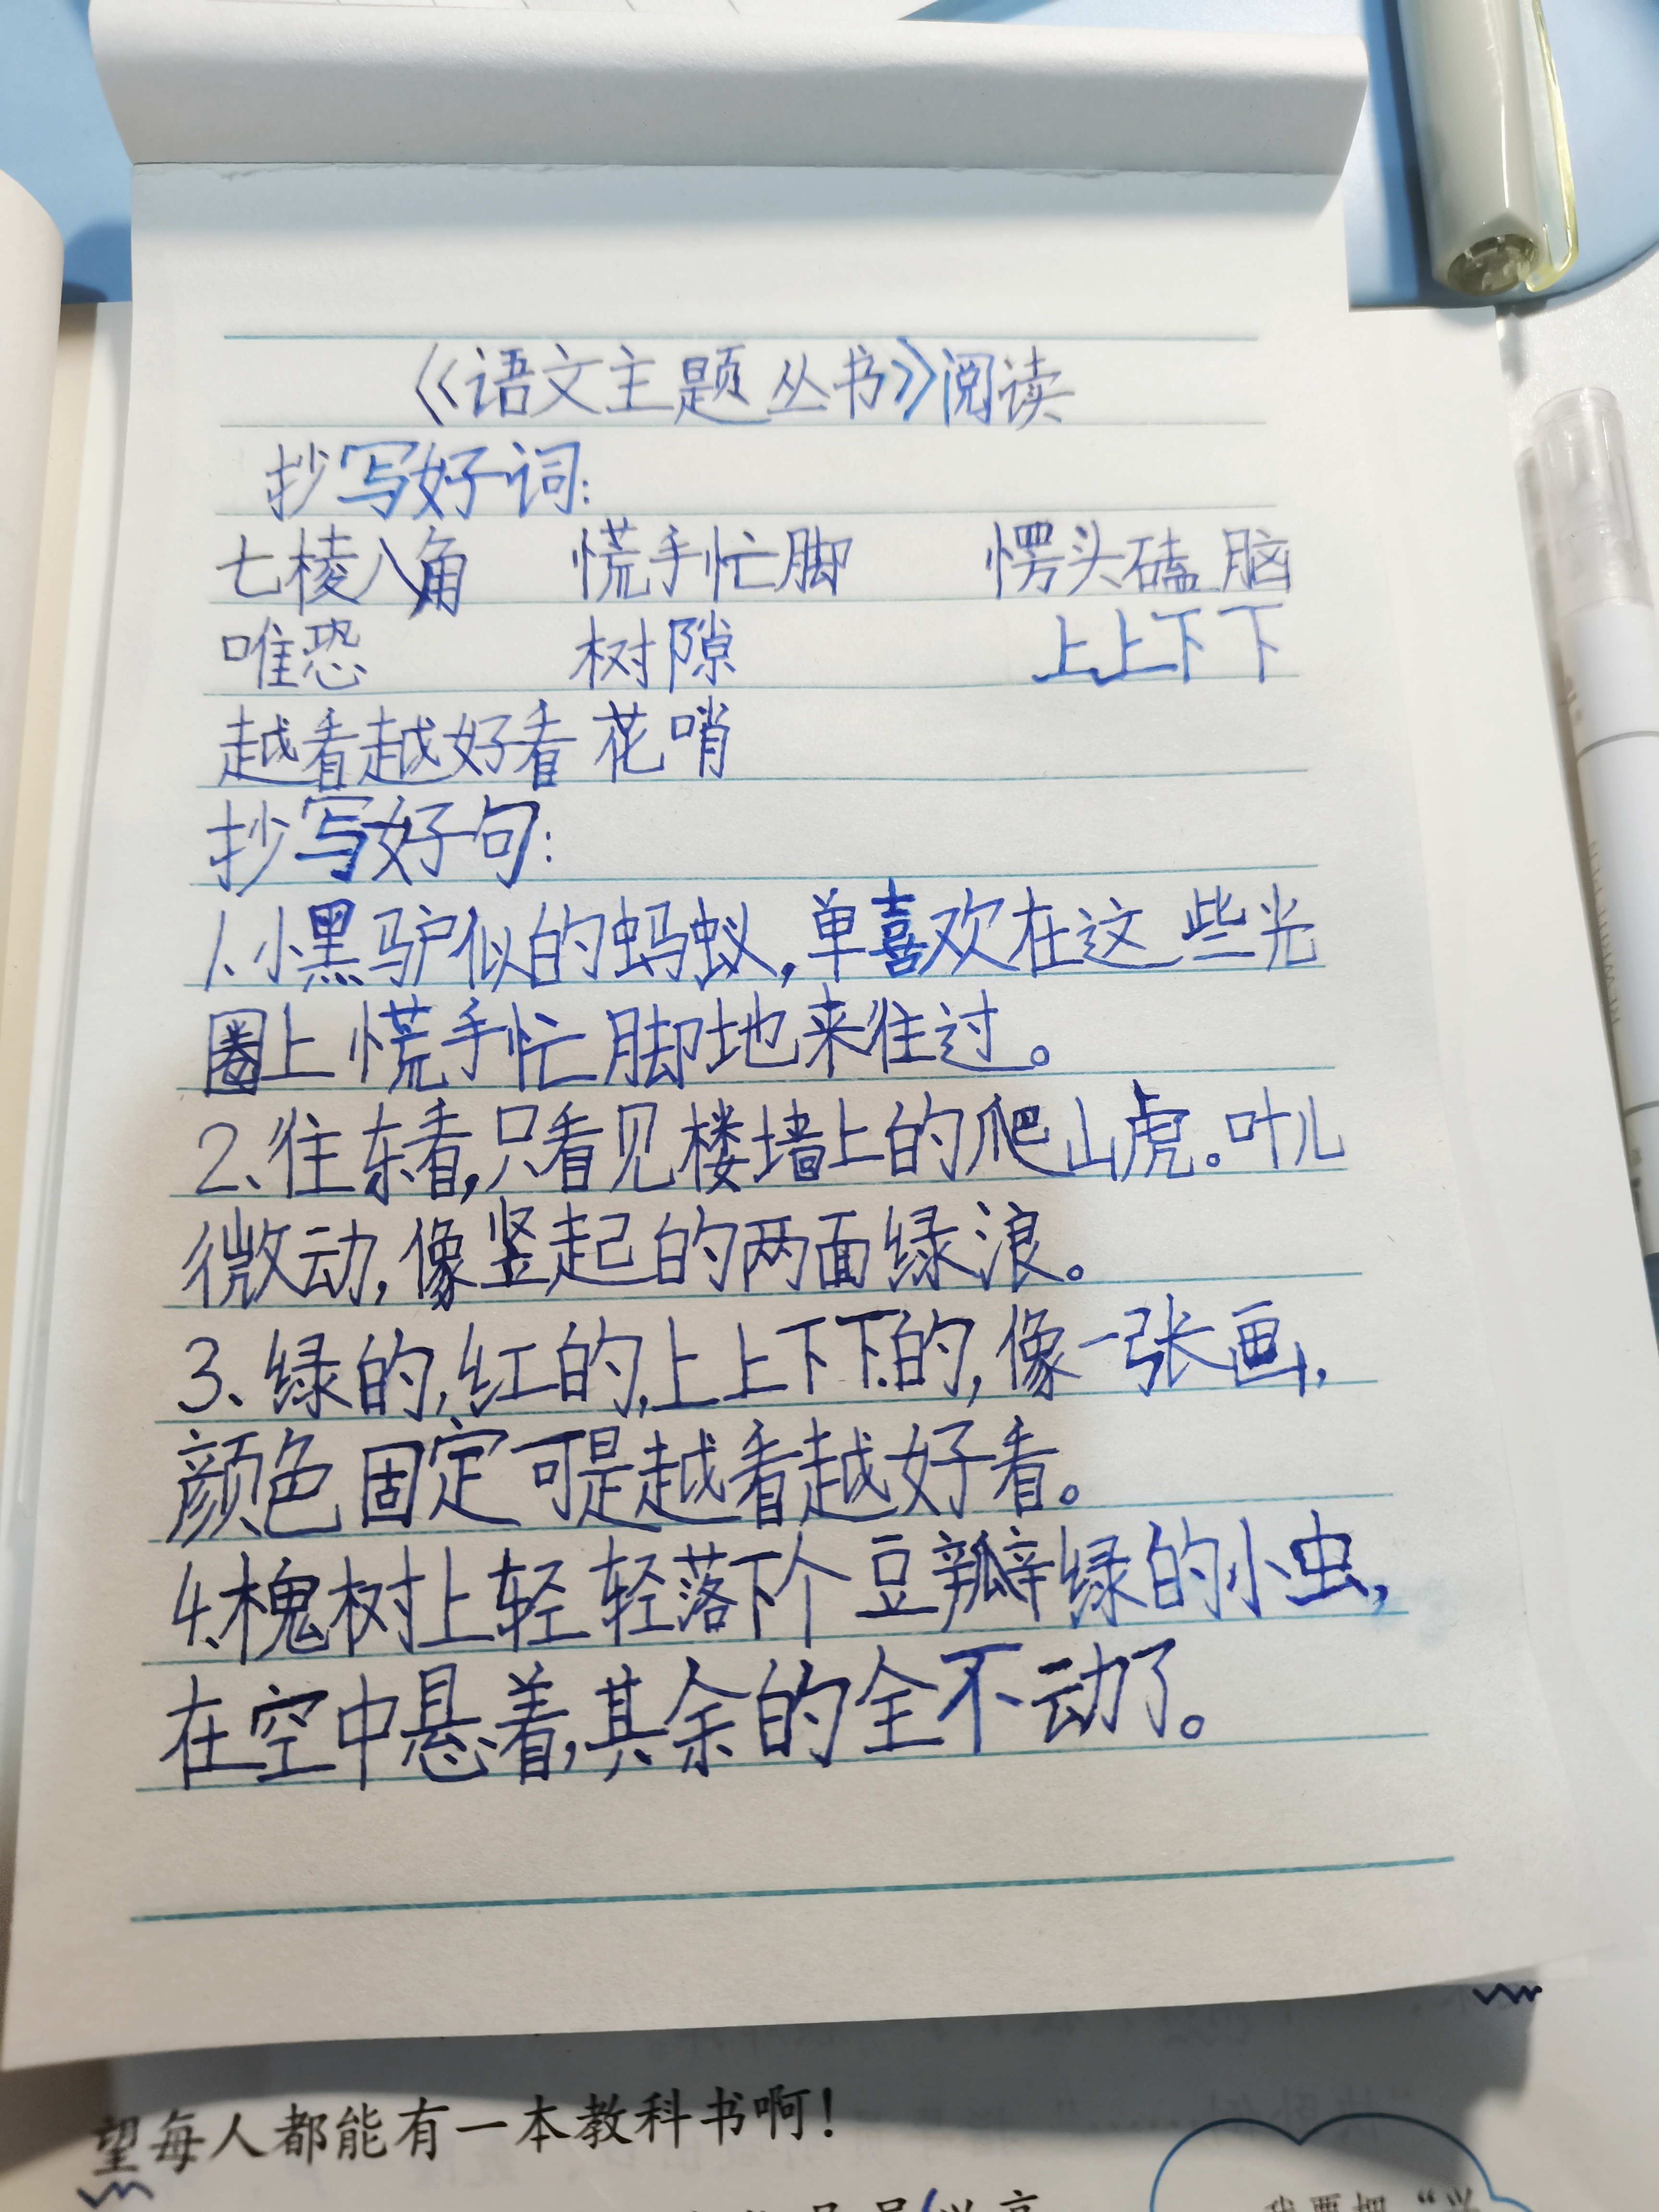 《语文主题丛书》阅读
抄写好词:
七棱八角 慌手忙脚 愣头磕脑
唯恐 树隙 上上下下
越看越好看 花哨
抄写好句:
1、小黑驴似的蚂蚁,单喜欢在这些光
圈上慌手忙脚地来往过。
2、往东看,只看见楼墙上的爬山虎。叶儿
微动,像竖起的两面绿浪。
3、绿的,红的,上上下下的,像一张画,
颜色固定可是越看越好看。
4、槐树上轻轻落下个豆瓣绿的小虫,
在空中悬着,其余的全不动了。
望每人都能有一本教科书啊！
我要把“兴